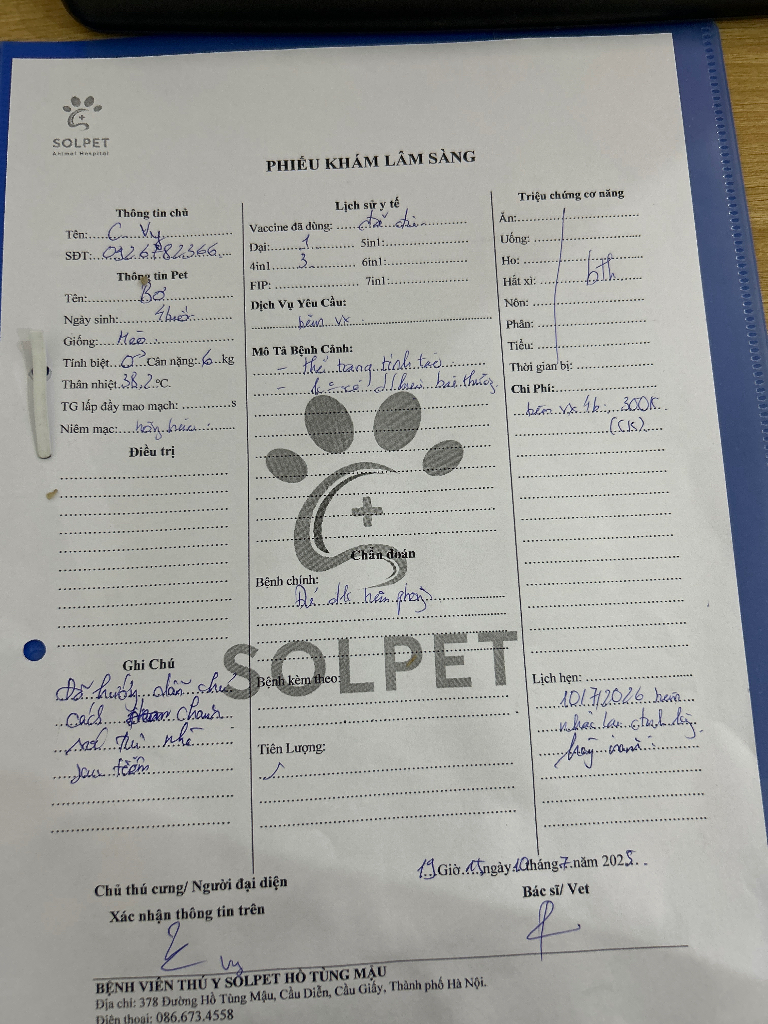 SOLPET
Animal Hospital
PHIẾU KHÁM LÂM SÀNG
Thông tin chủ
Tên: C Vy
SĐT: 0926782366
Thông tin Pet
Tên: Bơ
Ngày sinh: 4 tuổi
Giống: Mèo
Tính biệt ♂ Cân nặng: 6 kg
Thân nhiệt 38,2 °C
TG lấp đầy mao mạch: s
Niêm mạc: hồng hào
Điều trị
Ghi Chú
Đã hướng dẫn chủ
cách chăm
sóc tại nhà
sau tiêm
Lịch sử y tế
Vaccine đã dùng:
Dại: 1 5in1:
4in1 3 6in1:
FIP: 7in1:
Dịch Vụ Yêu Cầu:
tiêm vx
Mô Tả Bệnh Cảnh:
- thể trạng tỉnh táo
- k có biểu hiện bất thường
Chẩn đoán
Bệnh chính:
Đủ đk tiêm phòng
SOLPET
Bệnh kèm theo:
Tiên Lượng:
Triệu chứng cơ năng
Ăn:
Uống:
Ho:
Hắt xì: bth
Nôn:
Phân:
Tiểu:
Thời gian bị:
Chi Phí:
tiêm vx 4b: 300K
(CK)
Lịch hẹn:
10/7/2026 tiêm
nhắc lại định kỳ
hàng năm
19 Giờ 15 ngày 10 tháng 7 năm 2025
Chủ thú cưng/ Người đại diện
Xác nhận thông tin trên
Vy
Bác sĩ/ Vet
BỆNH VIỆN THÚ Y SOLPET HỒ TÙNG MẬU
Địa chỉ: 378 Đường Hồ Tùng Mậu, Cầu Diễn, Cầu Giấy, Thành phố Hà Nội.
Điện thoại: 086.673.4558